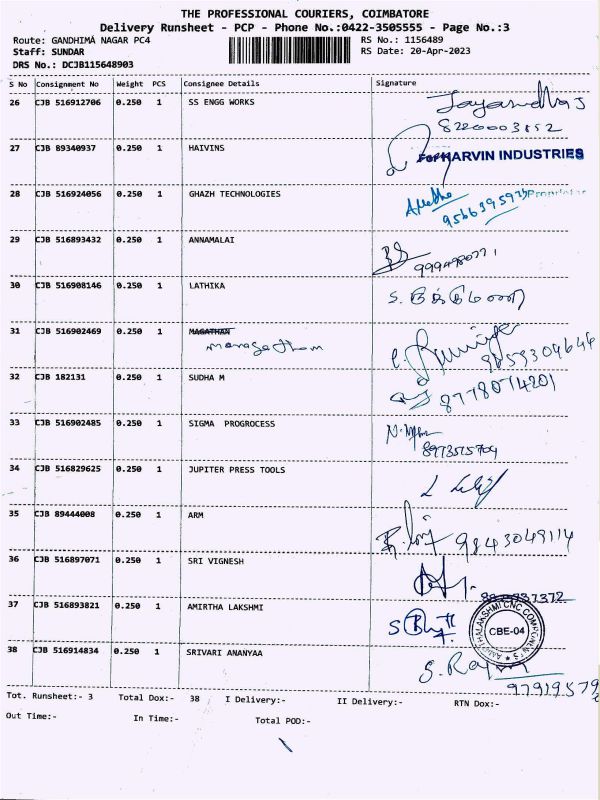 THE PROFESSIONAL COURIERS, COIMBATORE
Delivery Runsheet - PCP - Phone No.:0422-3505555 - Page No.:3
Route: GANDHIMA NAGAR PC4 RS No.: 1156489
Staff: SUNDAR RS Date: 20-Apr-2023
DRS No.: DCJB115648903
S No Consignment No Weight PCS Consignee Details Signature
26 CJB 516912706 0.250 1 SS ENGG WORKS
8220003852
27 CJB 89340937 0.250 1 HAIVINS For HARVIN INDUSTRIES
28 CJB 516924056 0.250 1 GHAZH TECHNOLOGIES Proprietor
9566395975
29 CJB 516893432 0.250 1 ANNAMALAI
30 CJB 516908146 0.250 1 LATHIKA
31 CJB 516902469 0.250 1 MAGATHAN
9659304644
32 CJB 182131 0.250 1 SUDHA M
8778074201
33 CJB 516902485 0.250 1 SIGMA PROGROCESS
8973515704
34 CJB 516829625 0.250 1 JUPITER PRESS TOOLS
35 CJB 89444008 0.250 1 ARM
9843049114
36 CJB 516897071 0.250 1 SRI VIGNESH
37 CJB 516893821 0.250 1 AMIRTHA LAKSHMI
CNC COMPONENTS
CBE-04
38 CJB 516914834 0.250 1 SRIVARI ANANYAA
97919579
Tot. Runsheet:- 3 Total Dox:- 38 I Delivery:- II Delivery:- RTN Dox:-
Out Time:- In Time:- Total POD:-